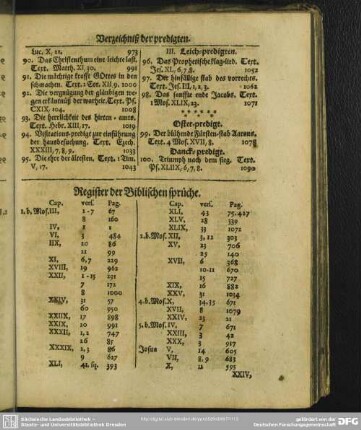 Verzeichniß der predigten.
Luc. X, 11. 973
90. Das Christenthum eine leichte last.
Text. Matth. XI, 30. 991
91. Die mächtige krafft GOttes in den
schwachen. Text. 2 Cor. XII, 9. 1000
92. Die vergnügung der gläubigen
wegen erkäntniß der warheit. Text. Ps.
CXIX, 104. 1008
93. Die herrlichkeit des hirten-amts.
Text. Hebr. XIII, 17. 1019
94. Visitations-predigt zur einführung
der hausbesuchung. Text. Ezech.
XXXIII, 7, 8, 9. 1033
95. Die ehre der ältesten. Text. 1 Tim.
V, 17. 1043
III. Leich-predigten.
96. Das Prophetische klag-lied. Text.
Jes. XL, 6, 7, 8. 1052
97. Der hinfällige stab des vorrathes.
Text. Jes. III, 1, 2, 3. 1062
98. Das sanffte ende Jacobs. Text.
1 Mos. XLIX, 23. 1071
Oster-predigt.
99. Der blühende Fürsten-stab Aarons.
Text. 4 Mos. XVII, 8. 1078
Danck-predigt.
100. Triumph nach dem sieg. Text.
Ps. XLIIX, 6, 7, 8. 1090
Register der Biblischen sprüche.
Cap. vers. Pag.
1. b. Mos. III, 1-7 67
8 160
IV, 2 1
VI, 3 484
IIX, 20 86
11 99
XI, 6, 7 229
XVIII, 19 962
XXII, 1-15 231
7 172
8 1000
XXIV, 31 57
60 950
XXIIX, 17 298
XXIX, 20 991
XXXII, 1, 2 747
26 85
XXXIX, 2, 3 86
9 627
XLI, 42. sq. 393
Cap. vers. Pag.
XLI, 43 75. 427
XLV, 28 339
XLIX, 33 1071
2. b. Mos. XII, 3, 12 303
XV, 23 706
25 140
XVII, 6 368
10-11 670
15 727
XIX, 16 882
XXV, 31 1034
4. b. Mos. X, 14. 33 671
XVII, 8 1079
XXIV, 23 21
5. b. Mos. IV, 7 671
XXXII, 3 42
XXX, 3 917
Josua V, 14 605
VII, 8, 9 683
X, 11 595
XXIV,